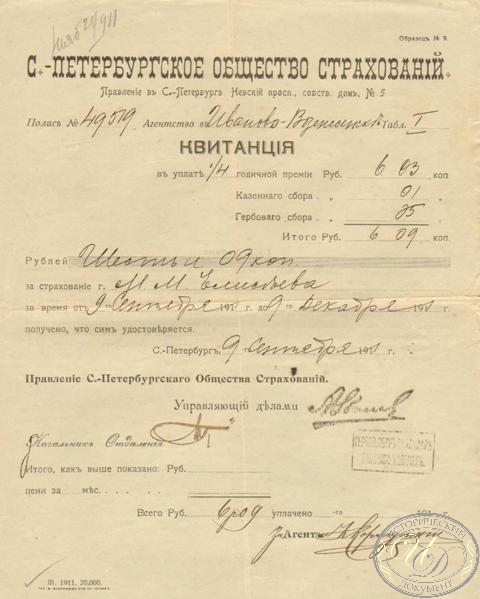 Образецъ № 9.
С.-ПЕТЕРБУРГСКОЕ ОБЩЕСТВО СТРАХОВАНІЙ.
Правленіе въ С.-Петербургѣ Невскій просп., собств. домъ, № 5
Полисъ № 49519 Агентство въ Иваново-Вознесенскѣ Табл. I
КВИТАНЦІЯ
въ уплатѣ 1/4 годичной преміи Руб. 6 03 коп
Казеннаго сбора . „ 01 „
Гербоваго сбора . „ 05 „
Итого Руб. 6 09 коп
Рублей Шесть и 09 коп.
за страхованіе г. М. М.
за время отъ 9 Сентября 191 г до 9 Декабря 191 г.
получено, что симъ удостовѣряется.
С.-Петербургъ, 9 Сентября 191 г.
Правленіе С.-Петербургскаго Общества Страхованій.
Управляющій дѣлами
Начальникъ Отдѣленія
Итого, какъ выше показано: Руб.
пени за мѣс.
Всего Руб. 6р09 уплачено -го 191 г.
Агентъ
ИСТОРИЧЕСКИЙ
ДОКУМЕНТ
III. 1911. 20,000.